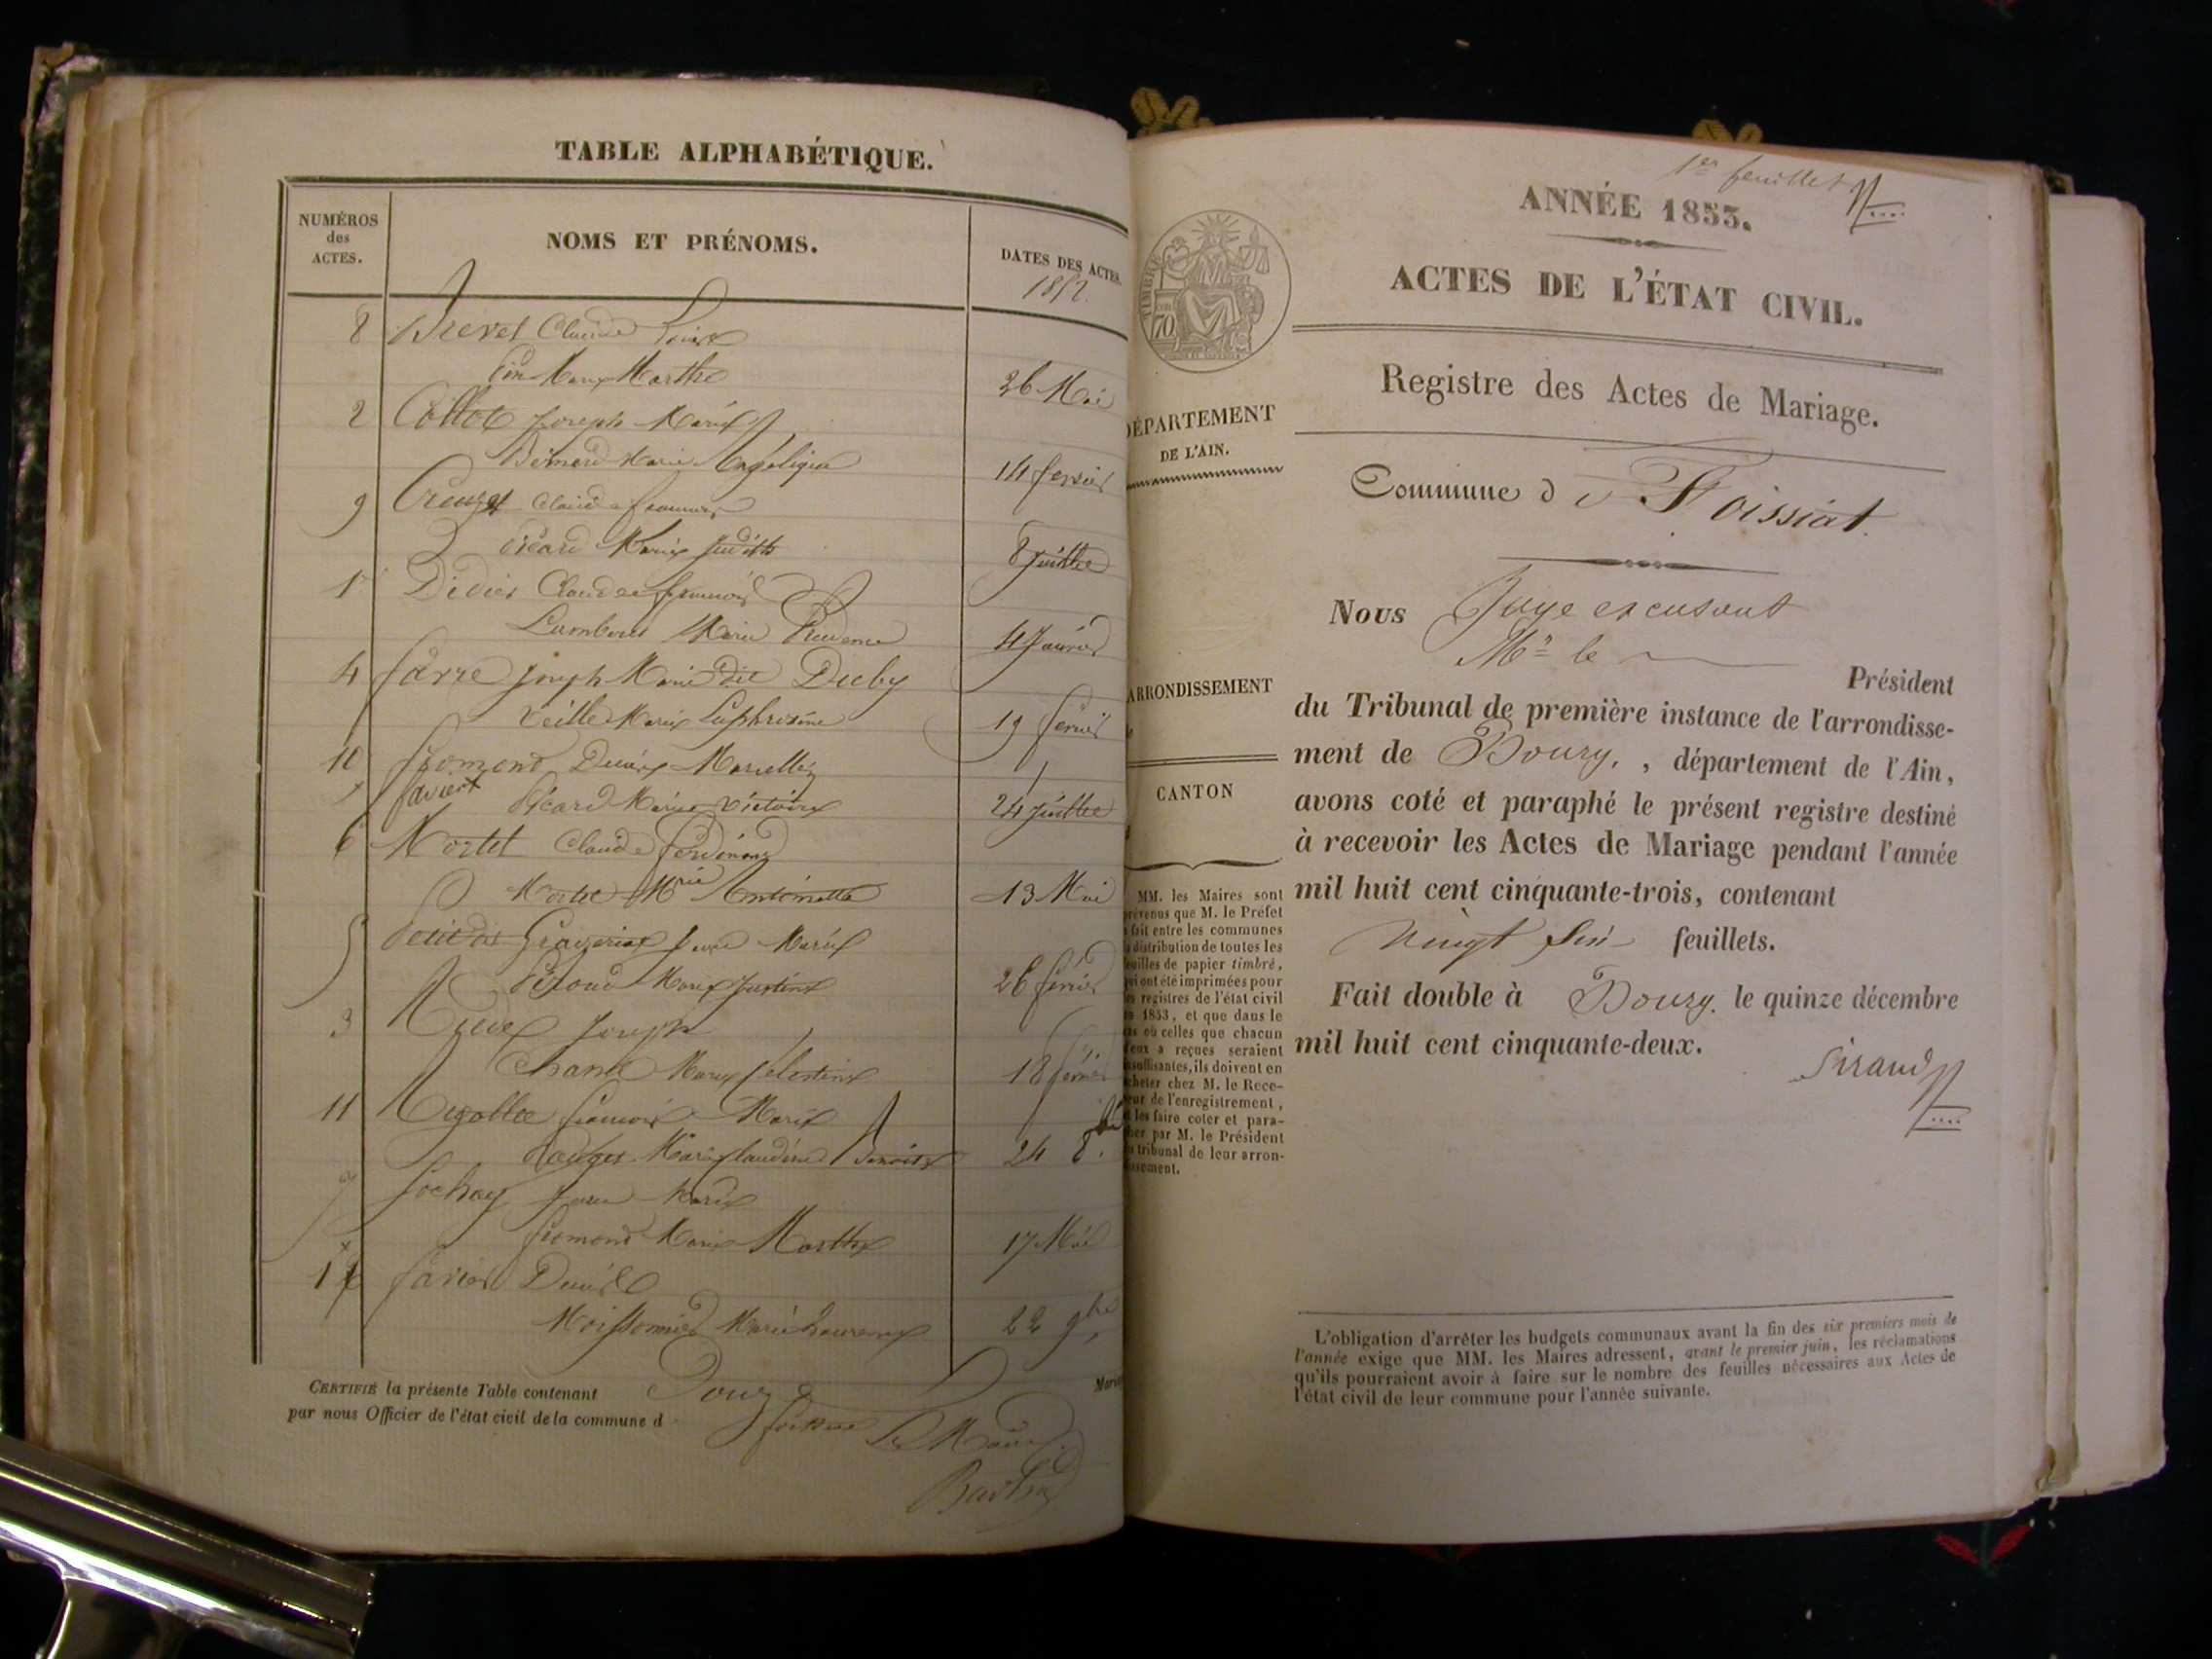 TABLE ALPHABÉTIQUE.
NUMÉROS
des
ACTES.
NOMS ET PRÉNOMS.
DATES DES ACTES.
1852.
8 Brevet Claude Louis
Marie Marthe
26 Mai
2 Collot Joseph Marie
Bernard Marie Angélique
14 fevrier
9 Creuzet Claude francois
Picard Marie Judith
8 Juillet
1 Didier Claude francois
Marie Prudence
4 Janvier
4 farre Joseph Marie dit Duby
Veille Marie Euphrosine
19 fevrier
10 fromond Denis Marcellin
favier
Picard Marie Victoire
24 Juillet
6 Mortel Claude ferdinand
Mortel Mrie Antoinette
13 Mai
5 Petit dit Graverias Marie
Marie Justine
26 fevrier
3 Joseph
Chanel Marie Celestine
18 fevrier
11 francois Marie
Marie Claudine Benoite
24 8bre
7 Sochay Marie
fromond Marie Marthe
17 Mai
favier Denis
Moissonnier Marie Laurence
22 9bre
CERTIFIÉ la présente Table contenant Douze
par nous Officier de l'état civil de la commune d
Le Maire
1er feuillet
ANNÉE 1853.
ACTES DE L'ÉTAT CIVIL.
TIMBRE
70
Registre des Actes de Mariage.
DÉPARTEMENT
DE L'AIN.
Commune de Foissiat
Nous Juge excusant
Mr le Président
ARRONDISSEMENT
du Tribunal de première instance de l'arrondisse-
ment de Bourg, , département de l'Ain,
CANTON
avons coté et paraphé le présent registre destiné
à recevoir les Actes de Mariage pendant l'année
mil huit cent cinquante-trois, contenant
vingt six feuillets.
Fait double à Bourg. le quinze décembre
mil huit cent cinquante-deux.
Sirand
MM. les Maires sont
prévenus que M. le Préfet
fait entre les communes
la distribution de toutes les
feuilles de papier timbré,
qui ont été imprimées pour
les registres de l'état civil
1853, et que dans le
cas où celles que chacun
d'eux a reçues seraient
insuffisantes, ils doivent en
acheter chez M. le Rece-
veur de l'enregistrement,
et les faire coter et para-
pher par M. le Président
tribunal de leur arron-
dissement.
L'obligation d'arrêter les budgets communaux avant la fin des six premiers mois de
l'année exige que MM. les Maires adressent, avant le premier juin, les réclamations
qu'ils pourraient avoir à faire sur le nombre des feuilles nécessaires aux Actes de
l'état civil de leur commune pour l'année suivante.